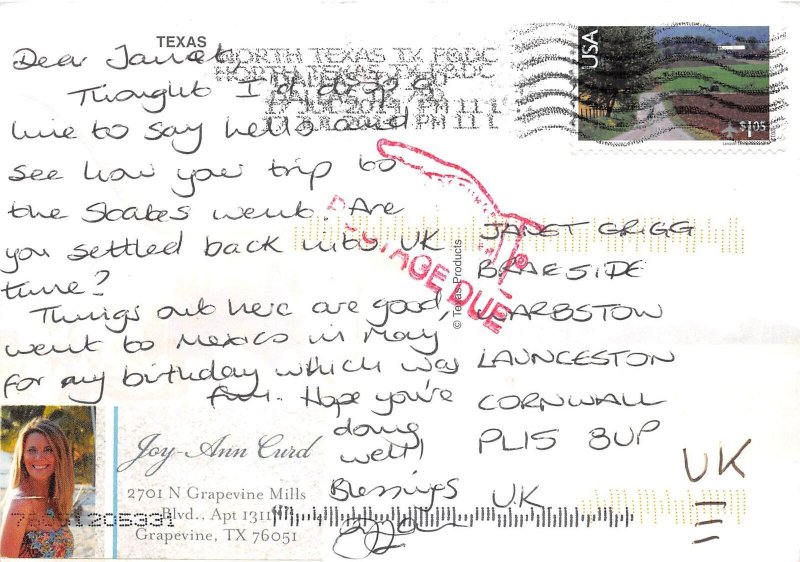 TEXAS
Dear Janet,
Thought I'd drop a
line to say hello and
see how your trip to
the States went. Are
you settled back into UK
time?
Things out here are good,
went to Mexico in May
for my birthday which was
fun. Hope you're
doing
well!
Blessings
Joy-Ann Curd
2701 N Grapevine Mills
Blvd., Apt 1311
Grapevine, TX 76051
76051205331
NORTH TEXAS TX P&DC
USA
$1.05
POSTAGE DUE
© Texas Products
JANET GRIGG
BRAESIDE
WARBSTOW
LAUNCESTON
CORNWALL
PL15 8UP
UK
UK